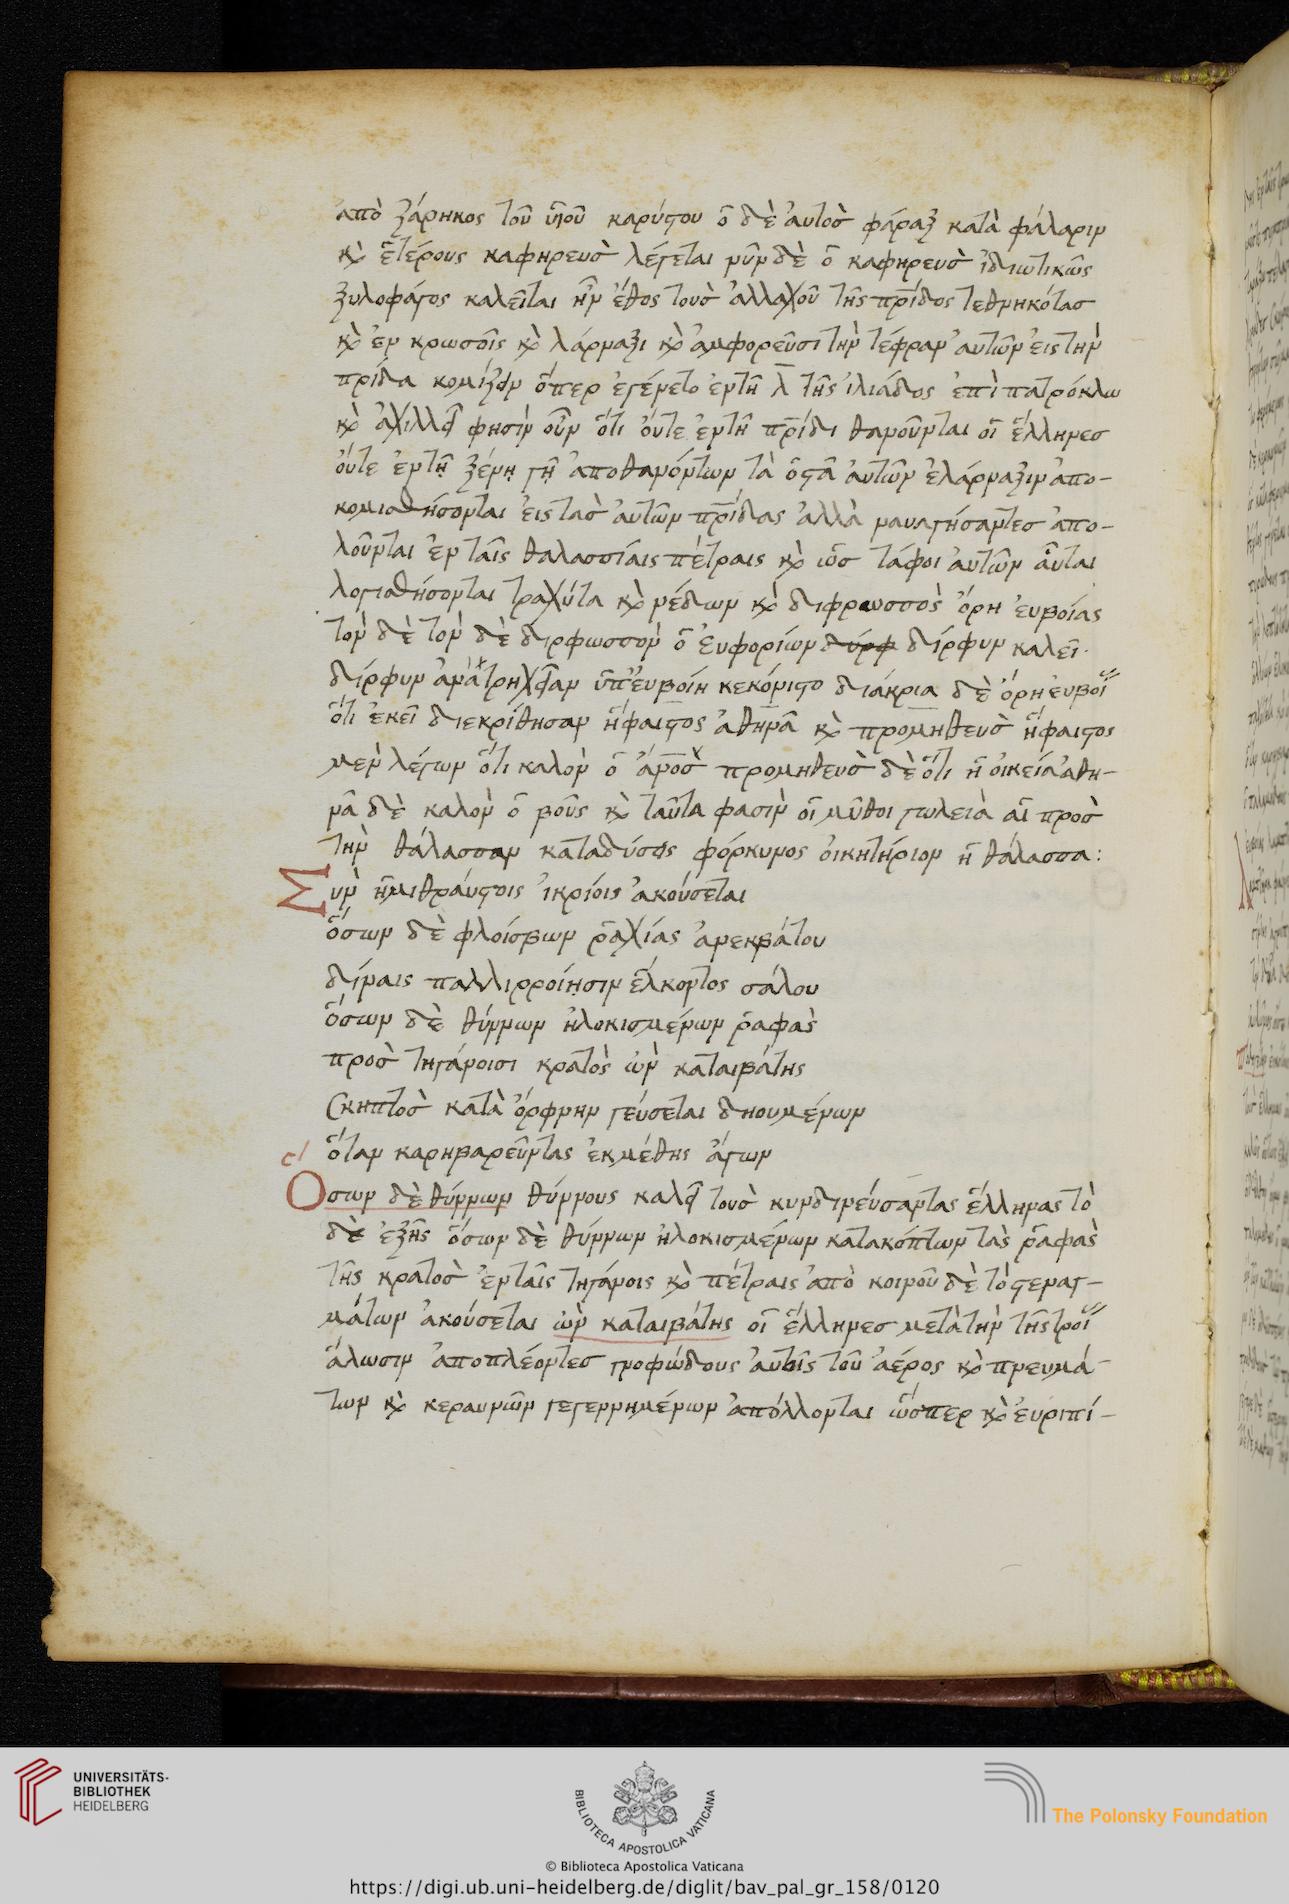 ἀπὸ ζάρηκος τοῦ υἱοῦ καρύστου ὁ δὲ αὐτὸς φάραξ κατὰ φάλαριν
κὶ ἑτέρους καφηρεὺς λέγεται νῦν δὲ ὁ καφηρεὺς ἰδιωτικῶς
ξυλοφάγος καλεῖται ἦν ἔθος τοὺς ἀλλαχοῦ τῆς πρίδος τεθνηκότας
κὶ ἐν κρωσοῖς κὶ λάρναξι κὶ ἀμφορεῦσι τὴν τέφραν αὐτῶν εἰς τὴν
πρίδα κομίζειν ὅπερ ἐγένετο ἐν τῆ λ τῆς ἰλιάδος ἐπὶ πατρόκλω
κὶ ἀχιλλεῖ φησὶν οὖν ὅτι οὔτε ἐν τῆ πρίδι θανοῦνται οἱ ἕλληνες
οὔτε ἐν τῇ ξένῃ γῇ ἀποθανόντων τὰ ὀστᾶ αὐτῶν ἐλάρναξιν ἀπο-
κομισθήσονται εἰς τὰς αὐτῶν πρίδας ἀλλὰ ναυαγήσαντες ἀπο-
λοῦνται ἐν ταῖς θαλασσίαις πέτραις κὶ ὡς τάφοι αὐτῶν αὗται
λογισθήσονται τραχύτα κὶ νέδων κὶ διφρωσσὸς ὄρη εὐβοίας
τὸν δὲ τὸν δὲ δίρφωσσον ὁ εὐφορίων δίρφυν καλεῖ.
δίρφυν ἀνὰ τρηχεῖαν ὑπ' εὐβοίη κεκόνιστο διάκρια δὲ ὄρη εὐβοί
ὅτι ἐκεῖ διεκρίθησαν ἥφαιστος ἀθηνᾶ κὶ προμηθεὺς ἥφαιστος
μὲν λέγων ὅτι καλὸν ὁ ἄνος προμηθεὺς δὲ ὅτι ἡ οἰκεία ἀθη-
νᾶ δὲ καλὸν ὁ βοῦς κὶ ταῦτα φασὶν οἱ μῦθοι γωλειὰ αἱ πρὸς
τὴν θάλασσαν καταδύσεις φόρκυνος οἰκητήριον ἡ θάλασσα:
Σὺν ἡμιθραύστοις ἰκρίοις ἀκούσεται
ὅσων δὲ φλοίσβων ῥαχίας ἀνεκβάτου
δίναις παλλιρροίῃσιν ἕλκοντος σάλου
ὅσων δὲ θύννων ἠλοκισμένων ῥαφὰς
πρὸς τηγάνοισι κρατὸς ὧν καταιβάτης
σκηπτὸς κατὰ ὄρφνην γεύσεται δηουμένων
ὅταν καρηβαρεῦντας ἐκμέθης ἄγων
Οσων δὲ θύννων θύννους καλεῖ τοὺς κυνδινεύσαντας ἕλληνας τὸ
δὲ ἑξῆς ὅσων δὲ θύννων ἠλοκισμένων κατακόπτων τὰς ῥαφὰς
τῆς κρατὸς ἐν ταῖς τηγάνοις κὶ πέτραις ἀπὸ κοινοῦ δὲ τὸ στεναγ-
μάτων ἀκούσεται ὧν καταιβάτης οἱ ἕλληνες μετὰ τὴν τῆς τροί
ἅλωσιν ἀποπλέοντες γνοφώδους αὐτοῖς τοῦ ἀέρος κὶ πνευμά-
των κὶ κεραυνῶν γεγεννημένων ἀπόλλονται ὥσπερ κὶ εὐριπί-
UNIVERSITÄTS-
BIBLIOTHEK
HEIDELBERG
BIBLIOTECA APOSTOLICA VATICANA
The Polonsky Foundation
© Biblioteca Apostolica Vaticana
https://digi.ub.uni-heidelberg.de/diglit/bav_pal_gr_158/0120